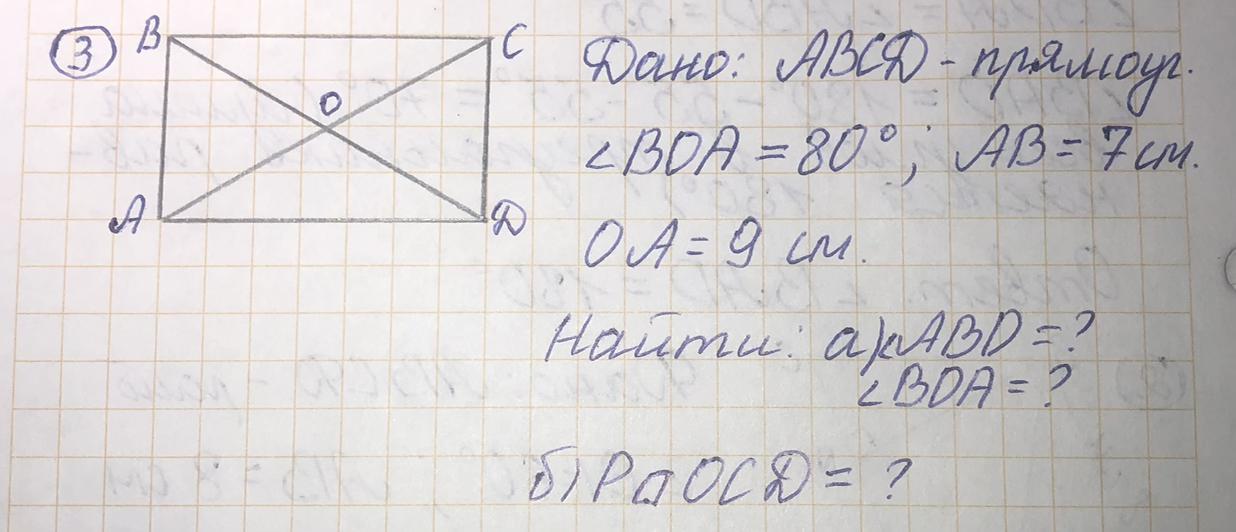 3
B
C
O
A
D
Дано: ABCD - прямоуг.
<BOA = 80°; AB = 7 см.
OA = 9 см.
Найти: а) <ABD = ?
<BOA = ?
б) P△OCD = ?